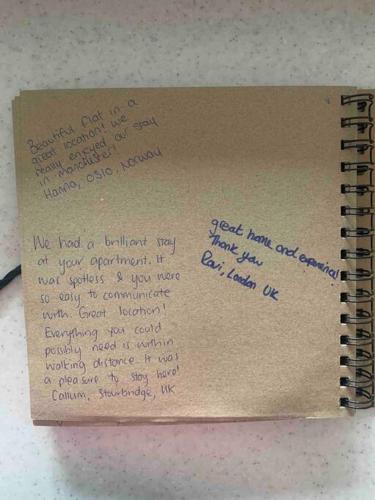 Beautiful flat in a
great location! We
really enjoyed our stay
in Manchester!
Hanna, Oslo, Norway
We had a brilliant stay
at your apartment. It
was spotless & you were
so easy to communicate
with. Great location!
Everything you could
possibly need is within
walking distance. It was
a pleasure to stay here!
Callum, Stourbridge, UK
great home and experience!
Thank you
Ravi, London UK